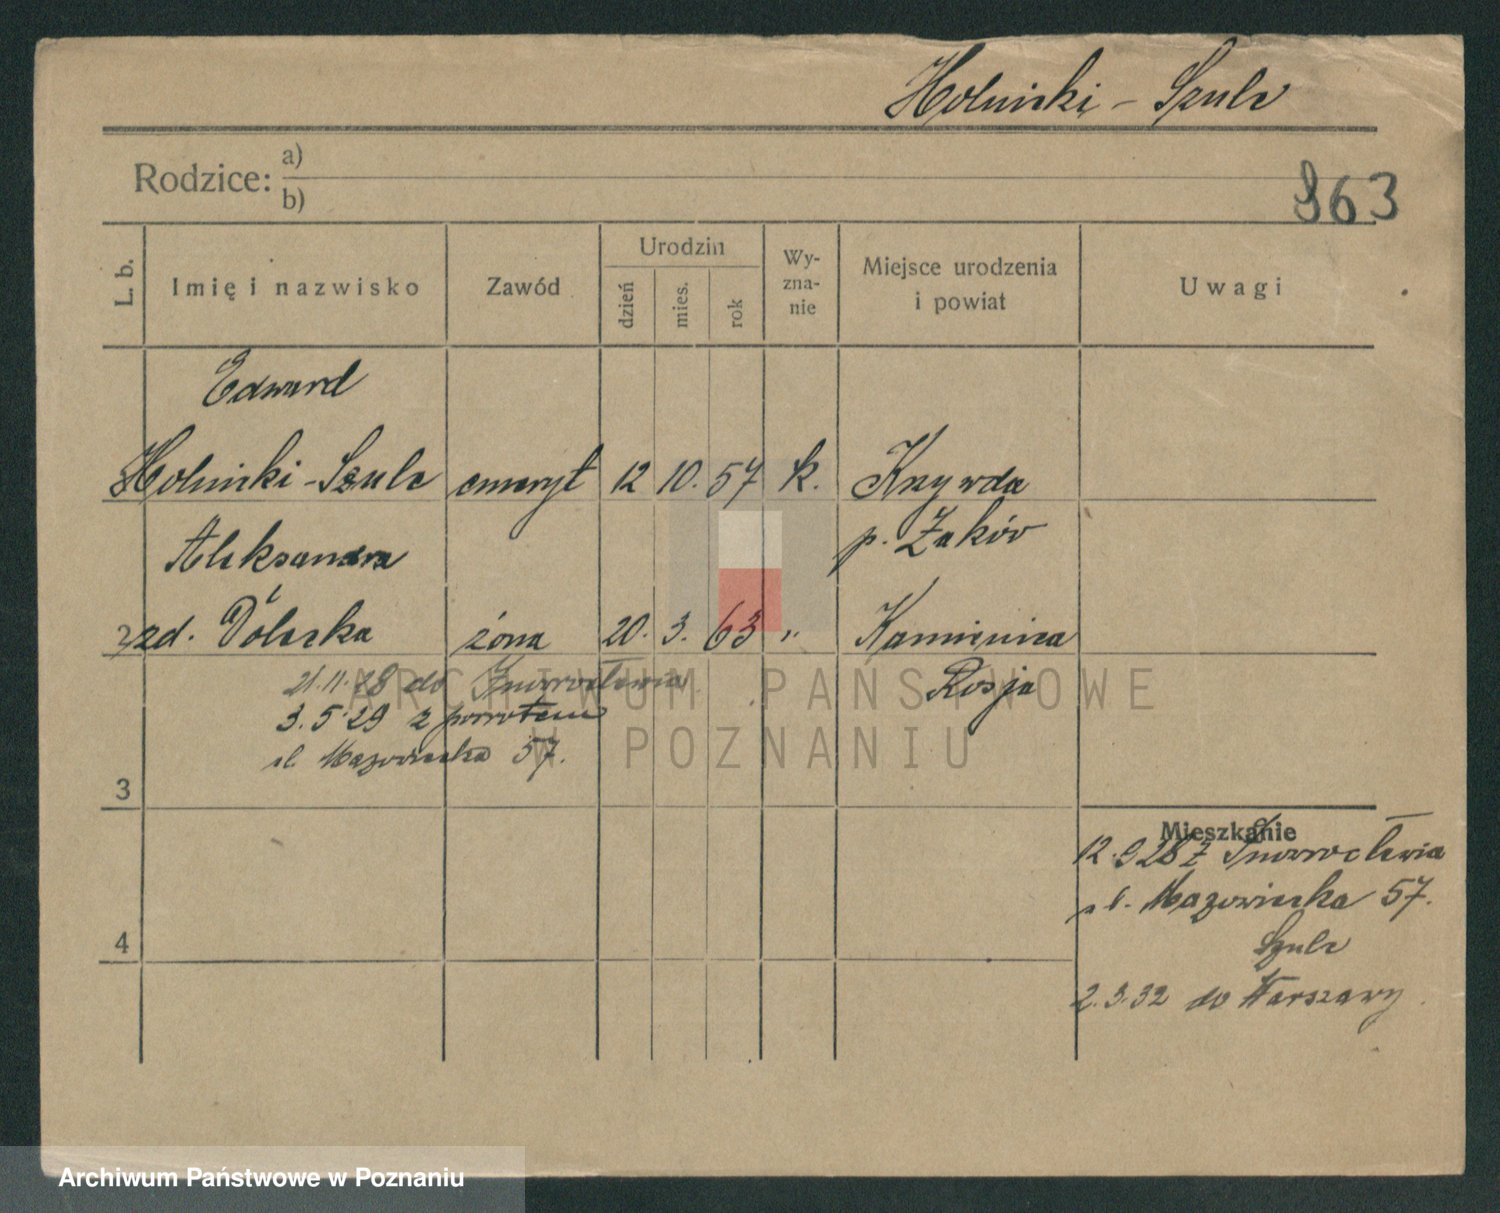 Holnicki - Szulc
Rodzice: a)
b)
863
L. b.
Imię i nazwisko
Zawód
Urodzin
dzień
mies.
rok
Wy-
zna-
nie
Miejsce urodzenia
i powiat
Uwagi
Edward
Holnicki - Szulc emeryt 12 10. 57 k. Krzywda
p. Żaków
Aleksandra
2 zd. żona 20. 3. 63 " Kamienica
Rosja
21.11.28 do Inowrocławia
3.5.29 z powrotem
ul. Mazowiecka 57.
3
Mieszkanie
12.9.28 z Inowrocławia
ul. Mazowiecka 57.
Szulc
4
2.3.32 do Warszawy
ARCHIWUM PAŃSTWOWE
W POZNANIU
Archiwum Państwowe w Poznaniu